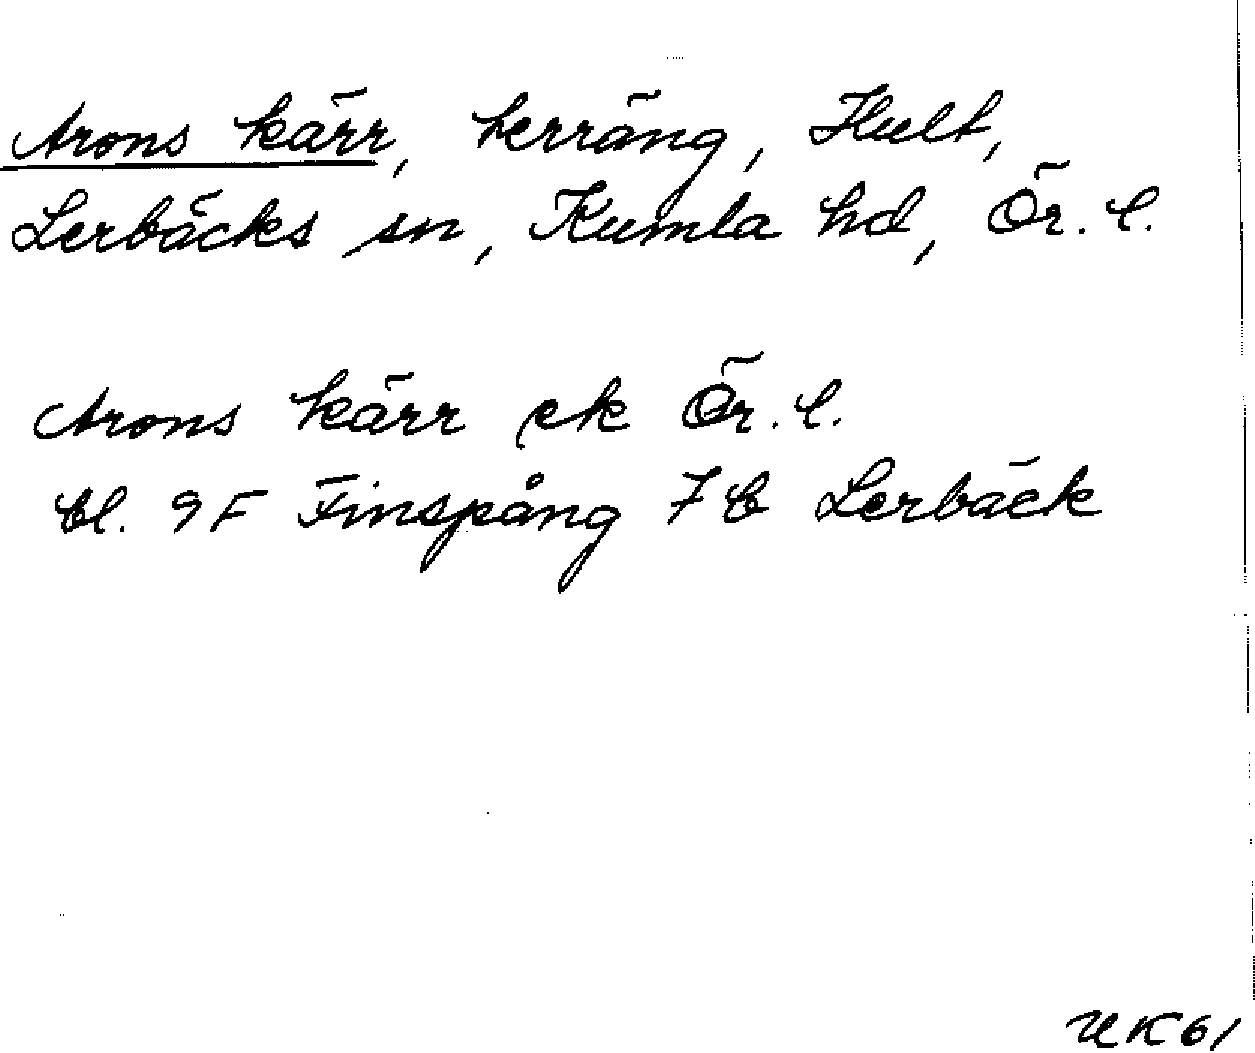 Arons kärr, terräng, Hult,
Lerbäcks sn, Kumla hd, Ör. l.
Arons kärr ek Ör. l.
bl. 9F Finspång 7b Lerbäck
UK61